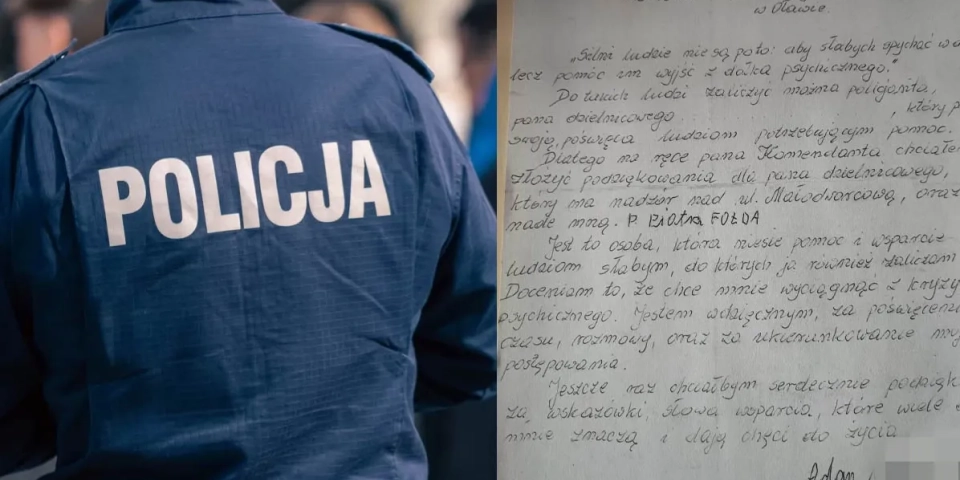 POLICJA
w Oławie.
„Silni ludzie nie są po to: aby słabych spychać w d
lecz pomóc im wyjść z dołka psychicznego."
Do takich ludzi zaliczyć można policjanta,
pana dzielnicowego , który p
swoją, poświęca ludziom potrzebującym pomoc.
Dlatego na ręce pana Komendanta chciałe
złożyć podziękowania dla pana dzielnicowego,
który ma nadzór nad ul. Małodworcową, oraz
nade mną. P. Piotra FOŁDA
Jest to osoba, która niesie pomoc i wsparcie
ludziom słabym, do których ja również zaliczam
Doceniam to, że chce mnie wyciągnąć z kryzy
psychicznego. Jestem wdzięcznym, za poświęceni
czasu, rozmowy, oraz za ukierunkowanie moj
postępowania.
Jeszcze raz chciałbym serdecznie podzięk
za wskazówki, słowa wsparcia, które wiele
mnie znaczą i dają chęci do życia
Adam